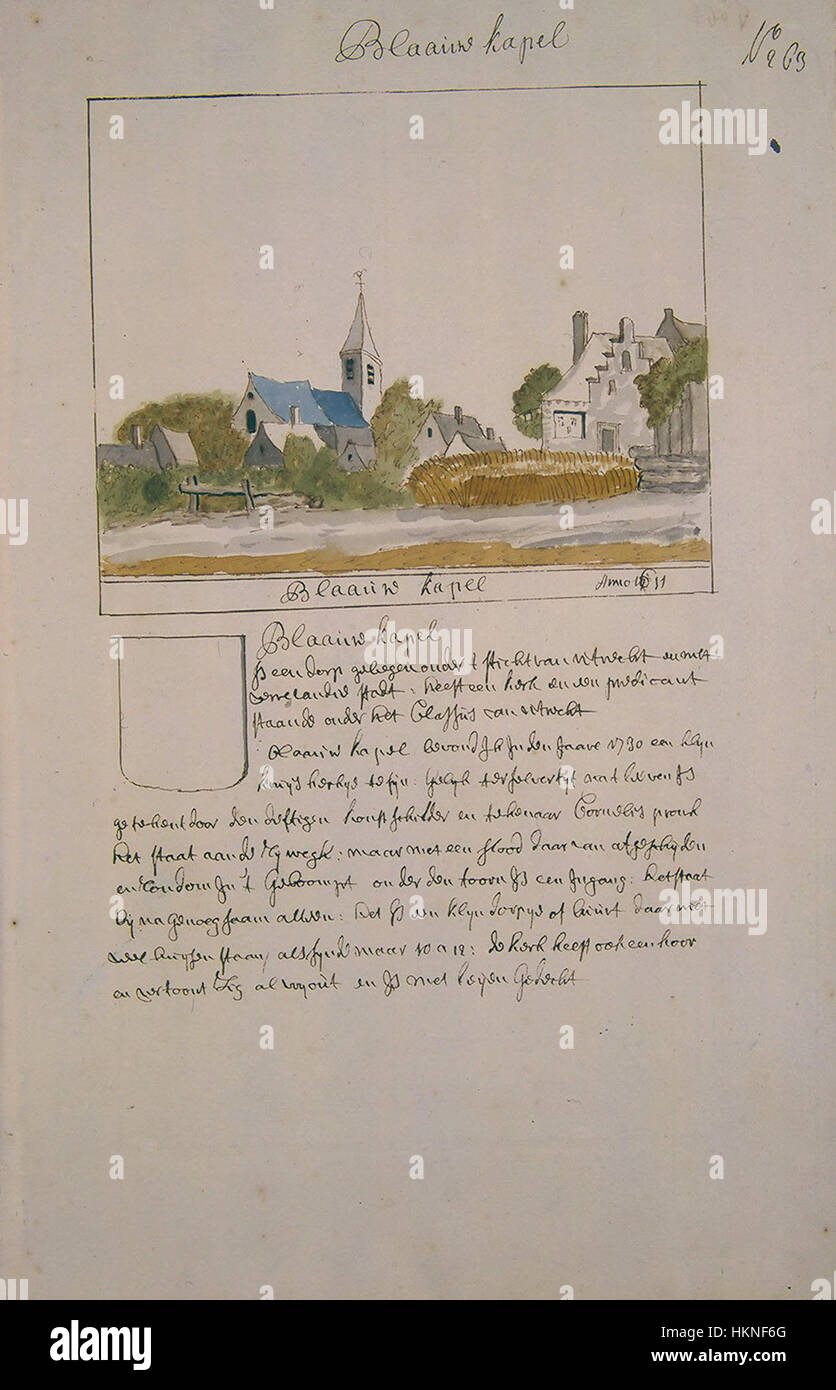 Blaauw kapel
N° 263
Blaauw kapel Anno 1611
Blaauw kapel
Is een dorp gelegen onder 't sticht van uitrecht en met
stadt: heeft een kerk en een predicant
staande onder het Classis van uitrecht
blaauw kapel bevond Ik In den Jaare 1730 een klyn
kerkje te sijn: gelyk ter selver tyt nat leven Is
getekent door den deftigen konst schilder en tekenaar Cornelis pronk
het staat aan de Rywegh: maar met een slood daar van afgeschijden
en rondom In 't Geboomt onder den toorn Is een Ingang: het staat
bij na genoegsaam alleen: het Is een klyn dorpje of buurt daar niet
veel huijsen staan, als sijnde maar 10 a 12: de kerk heeft ook een koor
en vertoont Sig al vry out en Is met leijen Gedekt
a
alamy
Image ID: HKNF6G
www.alamy.com